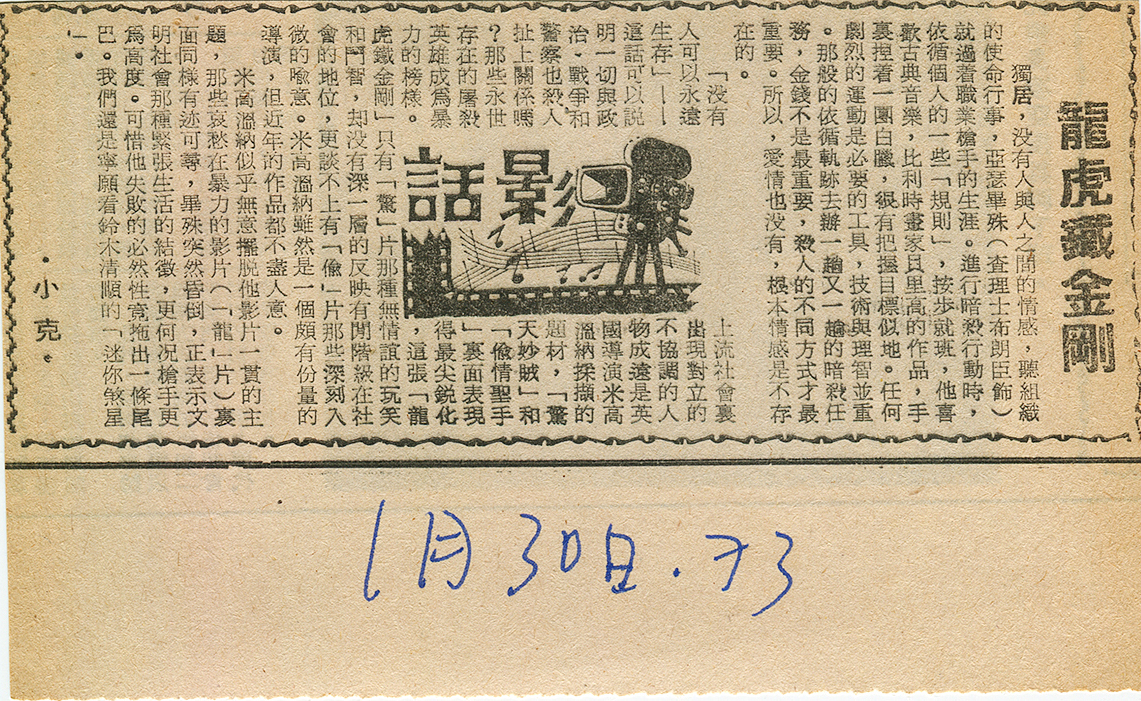 龍虎鐵金剛
獨居,没有人與人之間的情感,聽組織
的使命行事,亞瑟畢殊(查理士布朗臣飾)
就過着職業槍手的生涯。進行暗殺行動時,
依循個人的一些「規則」,按步就班,他喜
歡古典音樂,比利時畫家貝里高的作品,手
裏揑着一團白臘,很有把握目標似地。任何
劇烈的運動是必要的工具,技術與理智並重
。那般的依循軌跡去辦一趟又一趟的暗殺任
務,金錢不是最重要,殺人的不同方式才最
重要。所以,愛情也没有,根本情感是不存
在的。
「没有
人可以永遠
生存」——
這話可以說
明一切與政
治、戰爭和
警察也殺人
扯上關係嗎
?那些永世
存在的屠殺
英雄成爲暴
力的榜樣。
影話
上流社會裏
出現對立的
不協調的人
物成遠是英
國導演米高
溫納採擷的
題材,「驚
天妙賊」和
「偷情聖手
」裏面表現
得最尖銳化
,這張「龍
虎鐵金剛」只有「驚」片那種無情誼的玩笑
和鬥智,却没有深一層的反映有閒階級在社
會的地位,更談不上有「偷」片那些深刻入
微的喻意。米高溫納雖然是一個頗有份量的
導演,但近年的作品都不盡人意。
米高溫納似乎無意擺脫他影片一貫的主
題,那些哀愁在暴力的影片(「龍」片)裏
面同樣有迹可尋,畢殊突然昏倒,正表示文
明社會那種緊張生活的結徵,更何况槍手更
爲高度。可惜他失敗的必然性竟拖出一條尾
巴。我們還是寧願看鈴木清順的「迷你煞星
」。
・小克・
1月30日.73